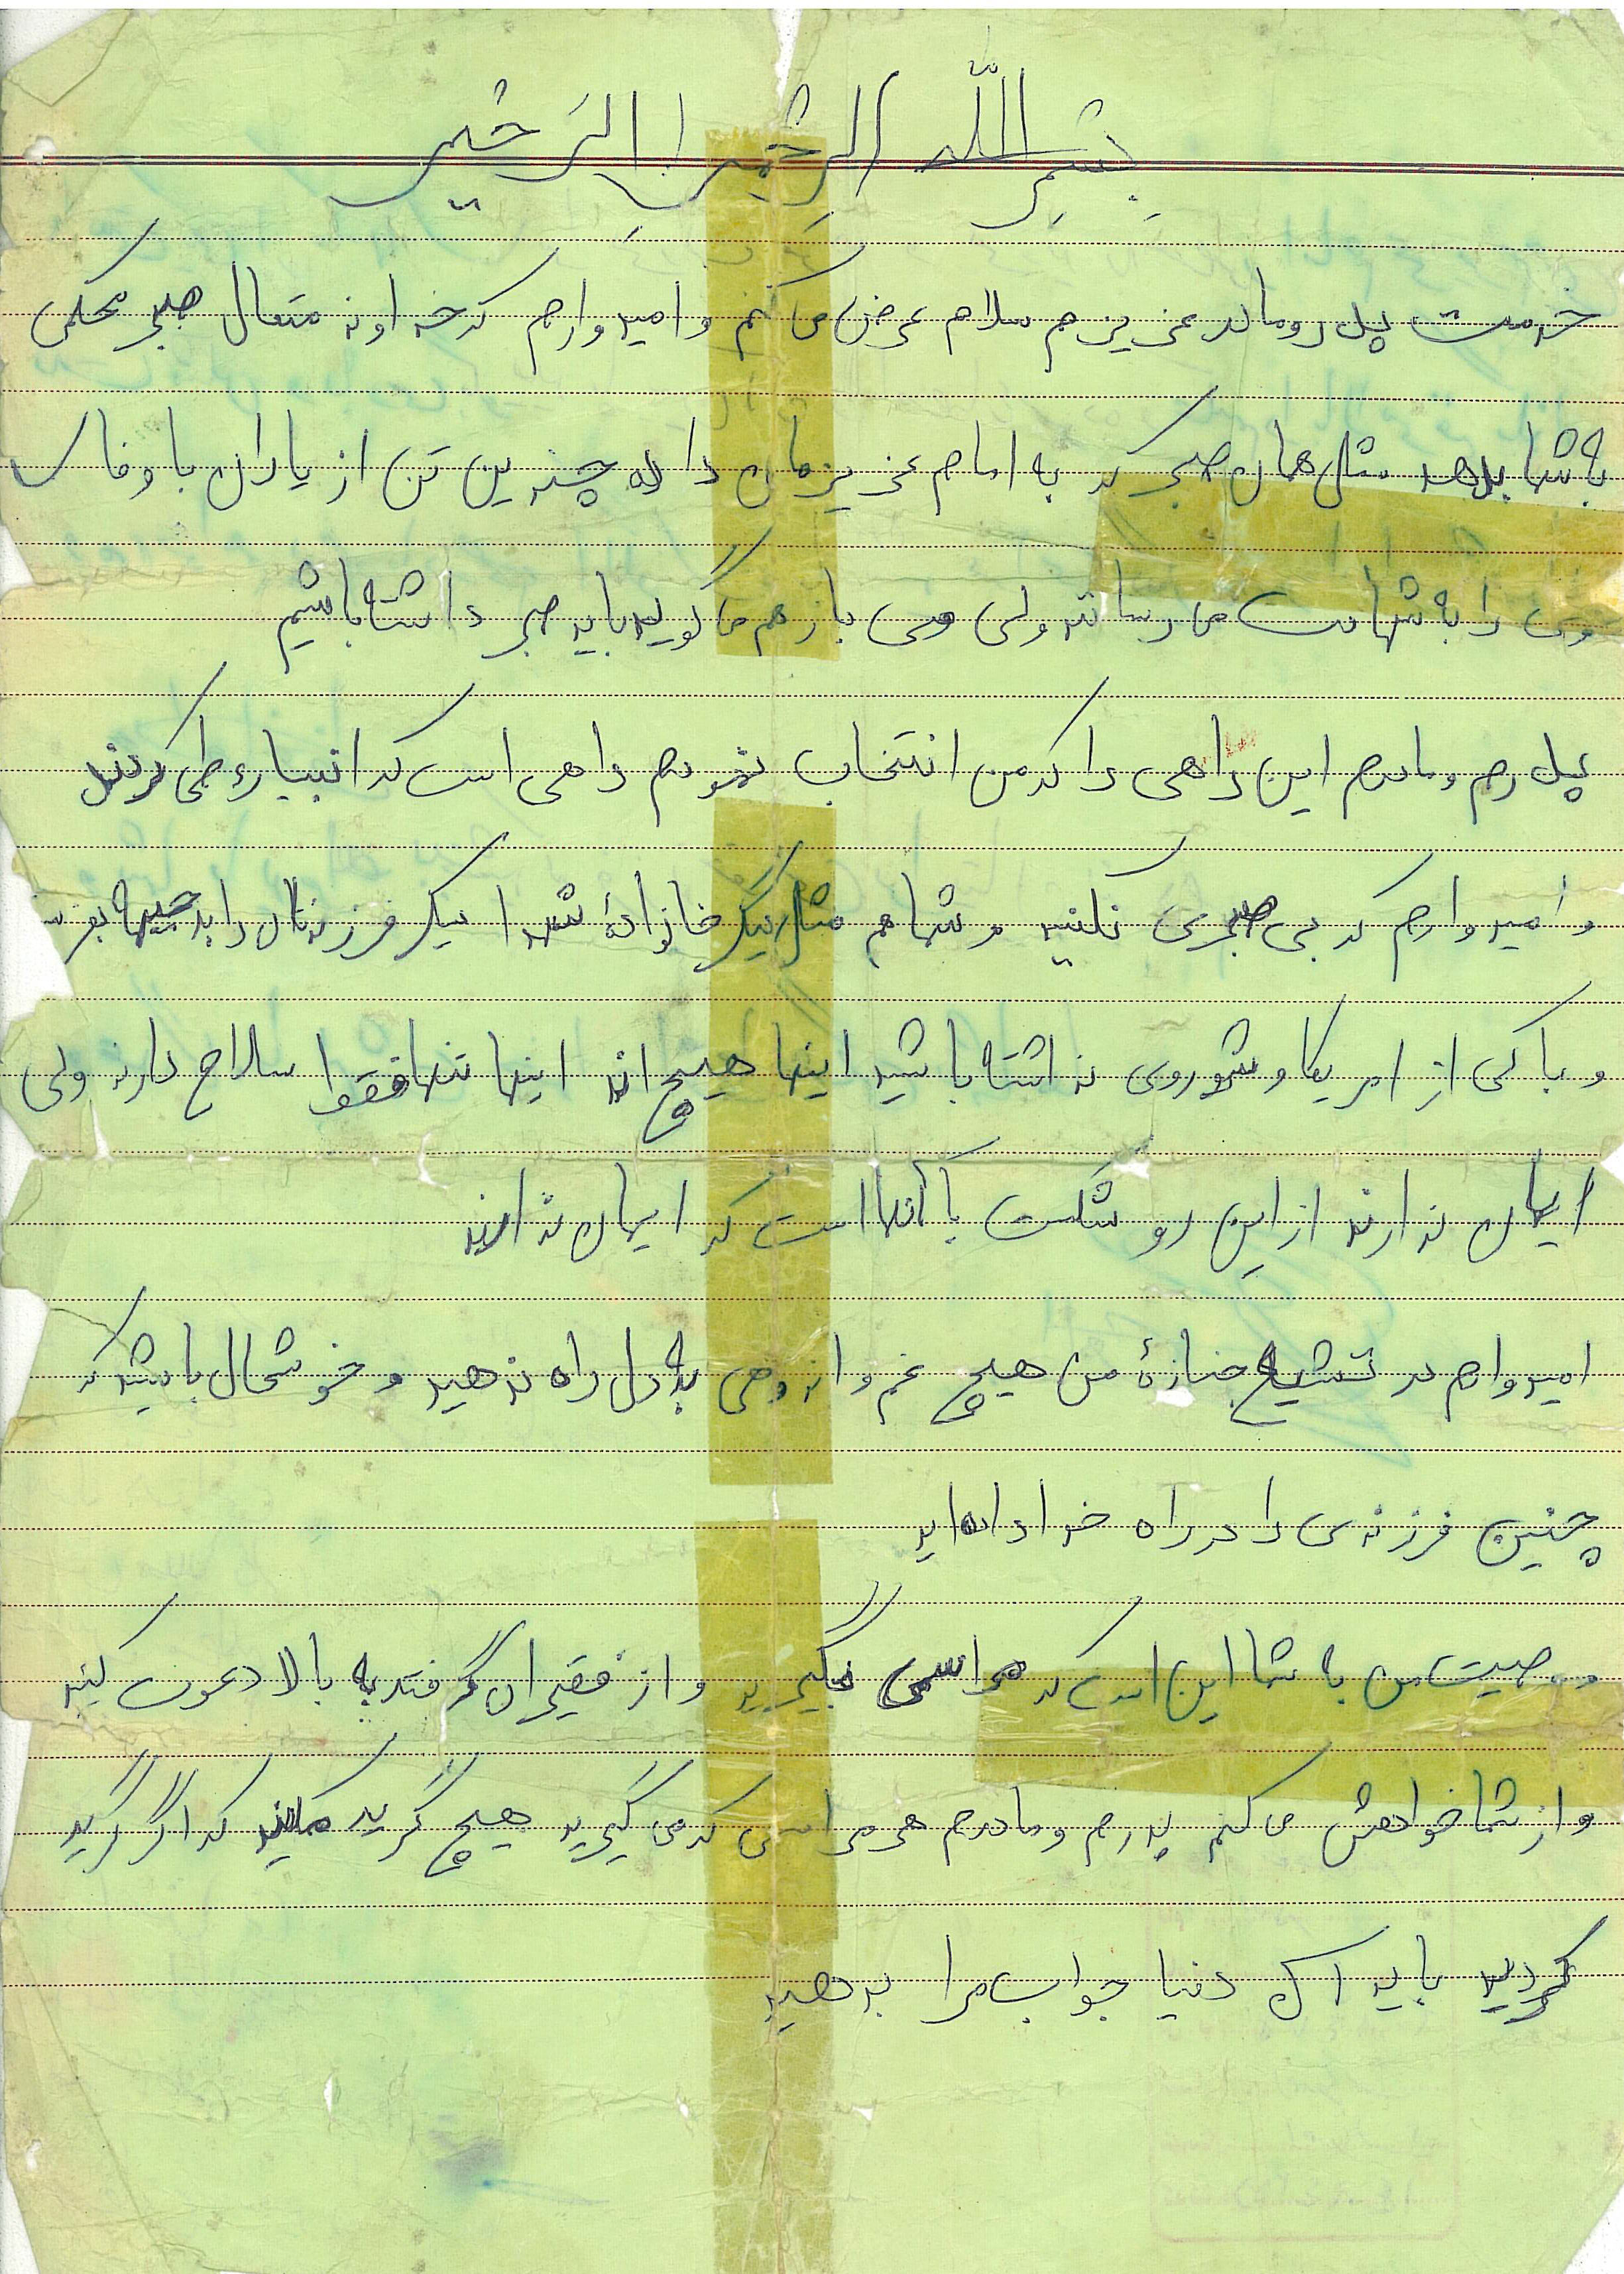 بسم الله الرحمن الرحیم
خدمت پدر و مادر عزیزم سلام عرض می کنم و امیدوارم که خداوند متعال صبر محکمی
به شما بدهد مثل همان صبر که به امام عزیزمان داده چندین تن از یاران با وفای
وی را به شهادت می رساند ولی وی باز هم می گوید باید صبر داشته باشیم
پدرم و مادرم این راهی را که من انتخاب نمودم راهی است که انبیاء طی کردند
و امیدوارم که بی صبری نکنید و شما هم مثل دیگر خانوادۀ شهدا دیگر فرزندتان را به جبهه بفرستید
و باکی از امریکا و شوروی نداشته باشید اینها هیچ اند اینها تنها فقط سلاح دارند ولی
ایمان ندارند از این رو شکست با آنها است که ایمان ندارند
امیدوارم در تشییع جنازۀ من هیچ غم و اندوهی به دل راه ندهید و خوشحال باشید که
چنین فرزندی را در راه خدا داده اید
وصیت من با شما این است که مراسمی بگیرید و از فقیران گرفته به بالا دعوت کنید
و از شما خواهش می کنم پدرم و مادرم هر مراسمی که می گیرید هیچ گریه نکنید که اگر گریه
کردید باید آن دنیا جواب مرا بدهید